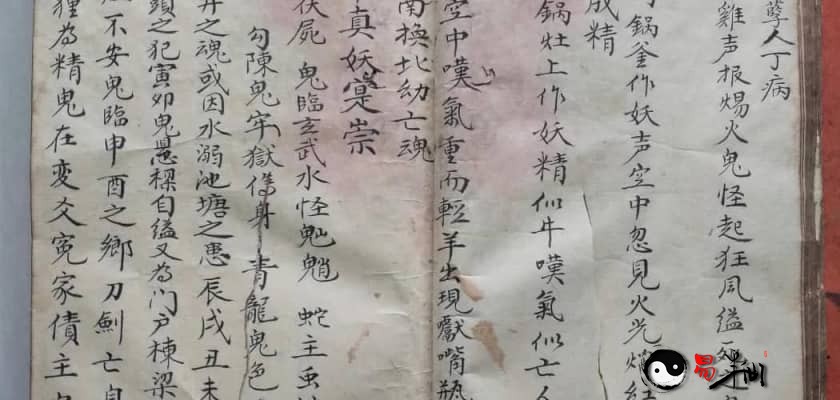 孽人丁病
雞声报煬火鬼怪起狂风缢死
鍋釜作妖声空中忽見火光
成精
鍋灶上作妖精似牛嘆氣似亡人
空中嘆氣重而輕羊出現獻嘴瓶
南換北幼亡魂
真妖寔祟
伏屍 鬼臨玄武水怪 蛇主虫
勾陳鬼牢獄傷身青龍鬼色
井之魂或因水溺池塘之患辰戌丑未
頭之犯寅卯鬼懸樑自缢又為门户棟梁
不安鬼臨申酉之鄉刀劍亡身
狸為精鬼在変爻冤家債主
易